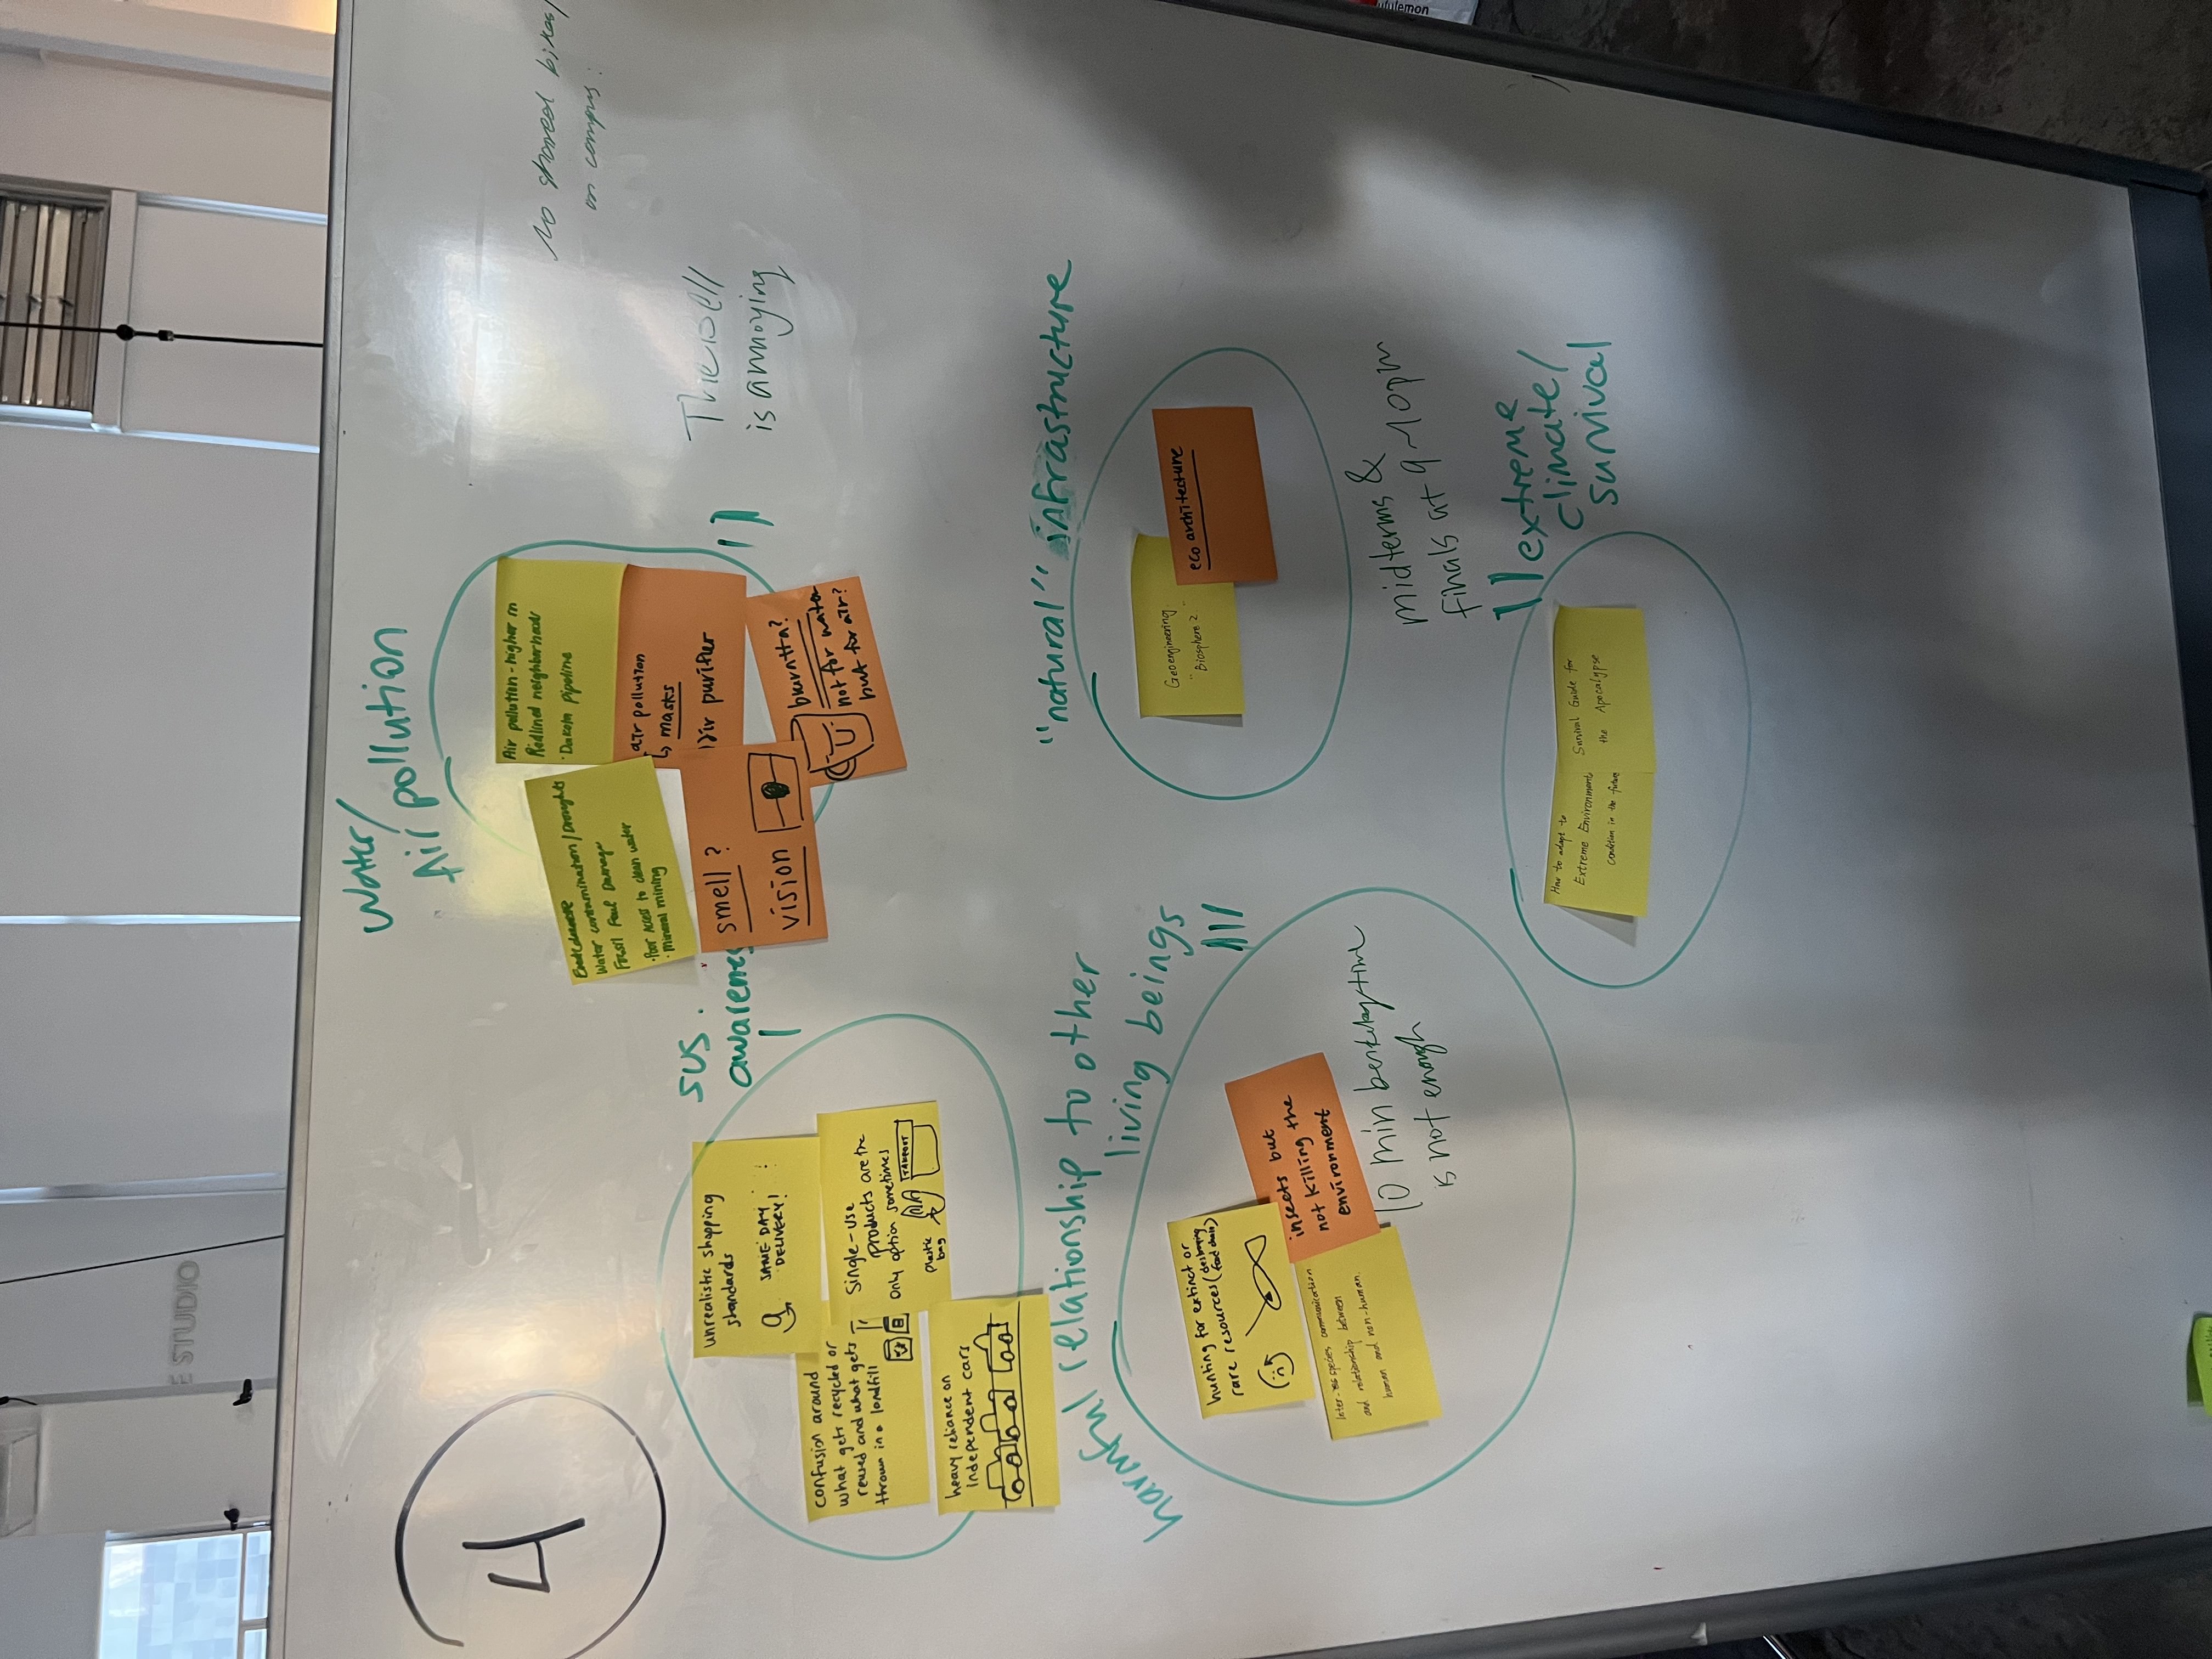 E STUDIO
4
Water/
Air pollution
Air pollution - higher in
Redlined neighborhoods
· Dakota Pipeline
Water contamination / Droughts
Fossil Fuel Damage
· Poor Access to clean water
· Mineral mining
air pollution
↳ masks
Air purifier
smell ?
vision
not for water
but for air?
||
No shared bikes/
on campus.
The bell
is annoying
sus.
awareness
|
unrealistic shopping
standards
a
SAME DAY
DELIVERY!
confusion around
what gets recycled or
reused and what gets
thrown in a landfill
Single-use
products are the
only option sometimes
TAKEOUT
plastic
bag
heavy reliance on
independent cars
harmful relationship to other
living beings
|||
hunting for extinct or
rare resources (destroying
food chain)
insects but
not killing the
environment
Inter-species communication
and relationship between
human and non-human.
10 min berkeley time
is not enough
"natural" infrastructure
Geoengineering
"Biosphere 2"
eco architecture
midterms &
finals at 9~10pm
||
extreme
climate/
survival
How to adapt to
Extreme Environment
Condition in the future
Survival Guide for
the Apocalypse